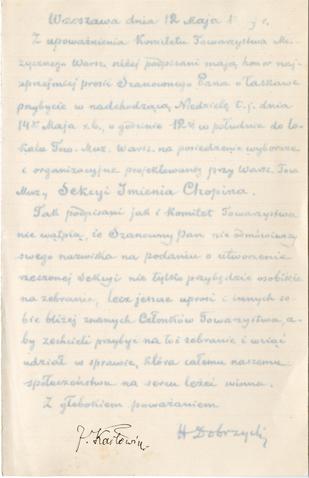 Warszawa dnia 12 Maja
Z upoważnienia Komitetu Towarzystwa Mu-
zycznego Warsz. niżej podpisani mają honor naj-
uprzejmiej prosić Szanownego Pana o łaskawe
przybycie w nadchodzącą Niedzielę t.j. dnia
14go Maja r.b. o godzinie 12ej w południe do lo-
kalu Tow. Muz. Warsz. na posiedzenie wyborcze
i organizacyjne projektowanej przy Warsz. Tow.
Muz. Sekcyi Imienia Chopina.
Tak podpisani jak i Komitet Towarzystwa
nie wątpią, że Szanowny Pan nie odmówiwszy
swego nazwiska na podaniu o utworzenie
rzeczonej Sekcyi nie tylko przybędzie osobiście
na zebranie, lecz jeszcze uprosi i innych so-
bie bliżej znanych Członków Towarzystwa, a-
by zechcieli przybyć na toż zebranie i wziąć
udział w sprawie, która całemu naszemu
społeczeństwu na sercu leżeć winna.
Z głębokiem poważaniem
J. Karłowicz H Dobrzycki